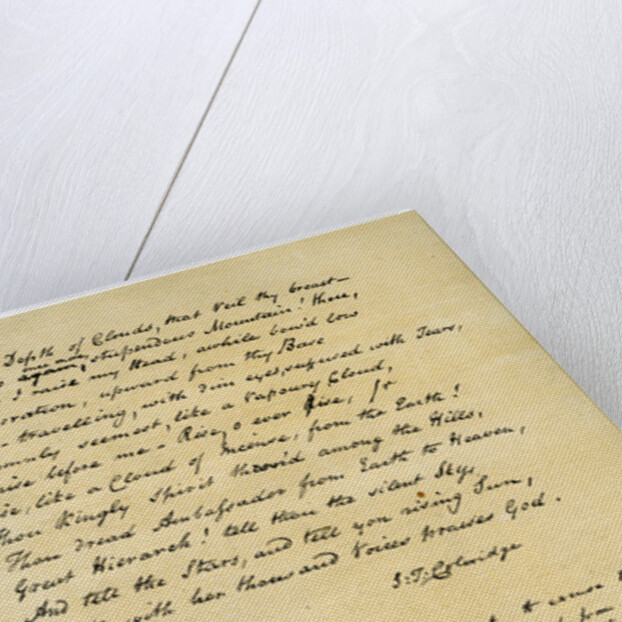 Depth of Clouds, that veil thy breast—
again, stupendous Mountain! thou,
I raise my Head, awhile bow'd low
oration, upward from thy Base
- travelling, with dim eyes suffused with Tears,
emnly seemest, like a vapoury Cloud,
rise before me - Rise, o ever Rise,
se, like a Cloud of Incense, from the Earth!
Thou Kingly Spirit thron'd among the Hills,
Thou dread Ambassador from Earth to Heaven,
Great Hierarch! tell thou the silent Sky,
And tell the Stars, and tell yon rising Sun,
with her thousand Voices praises God.
S. T. Coleridge
it cause